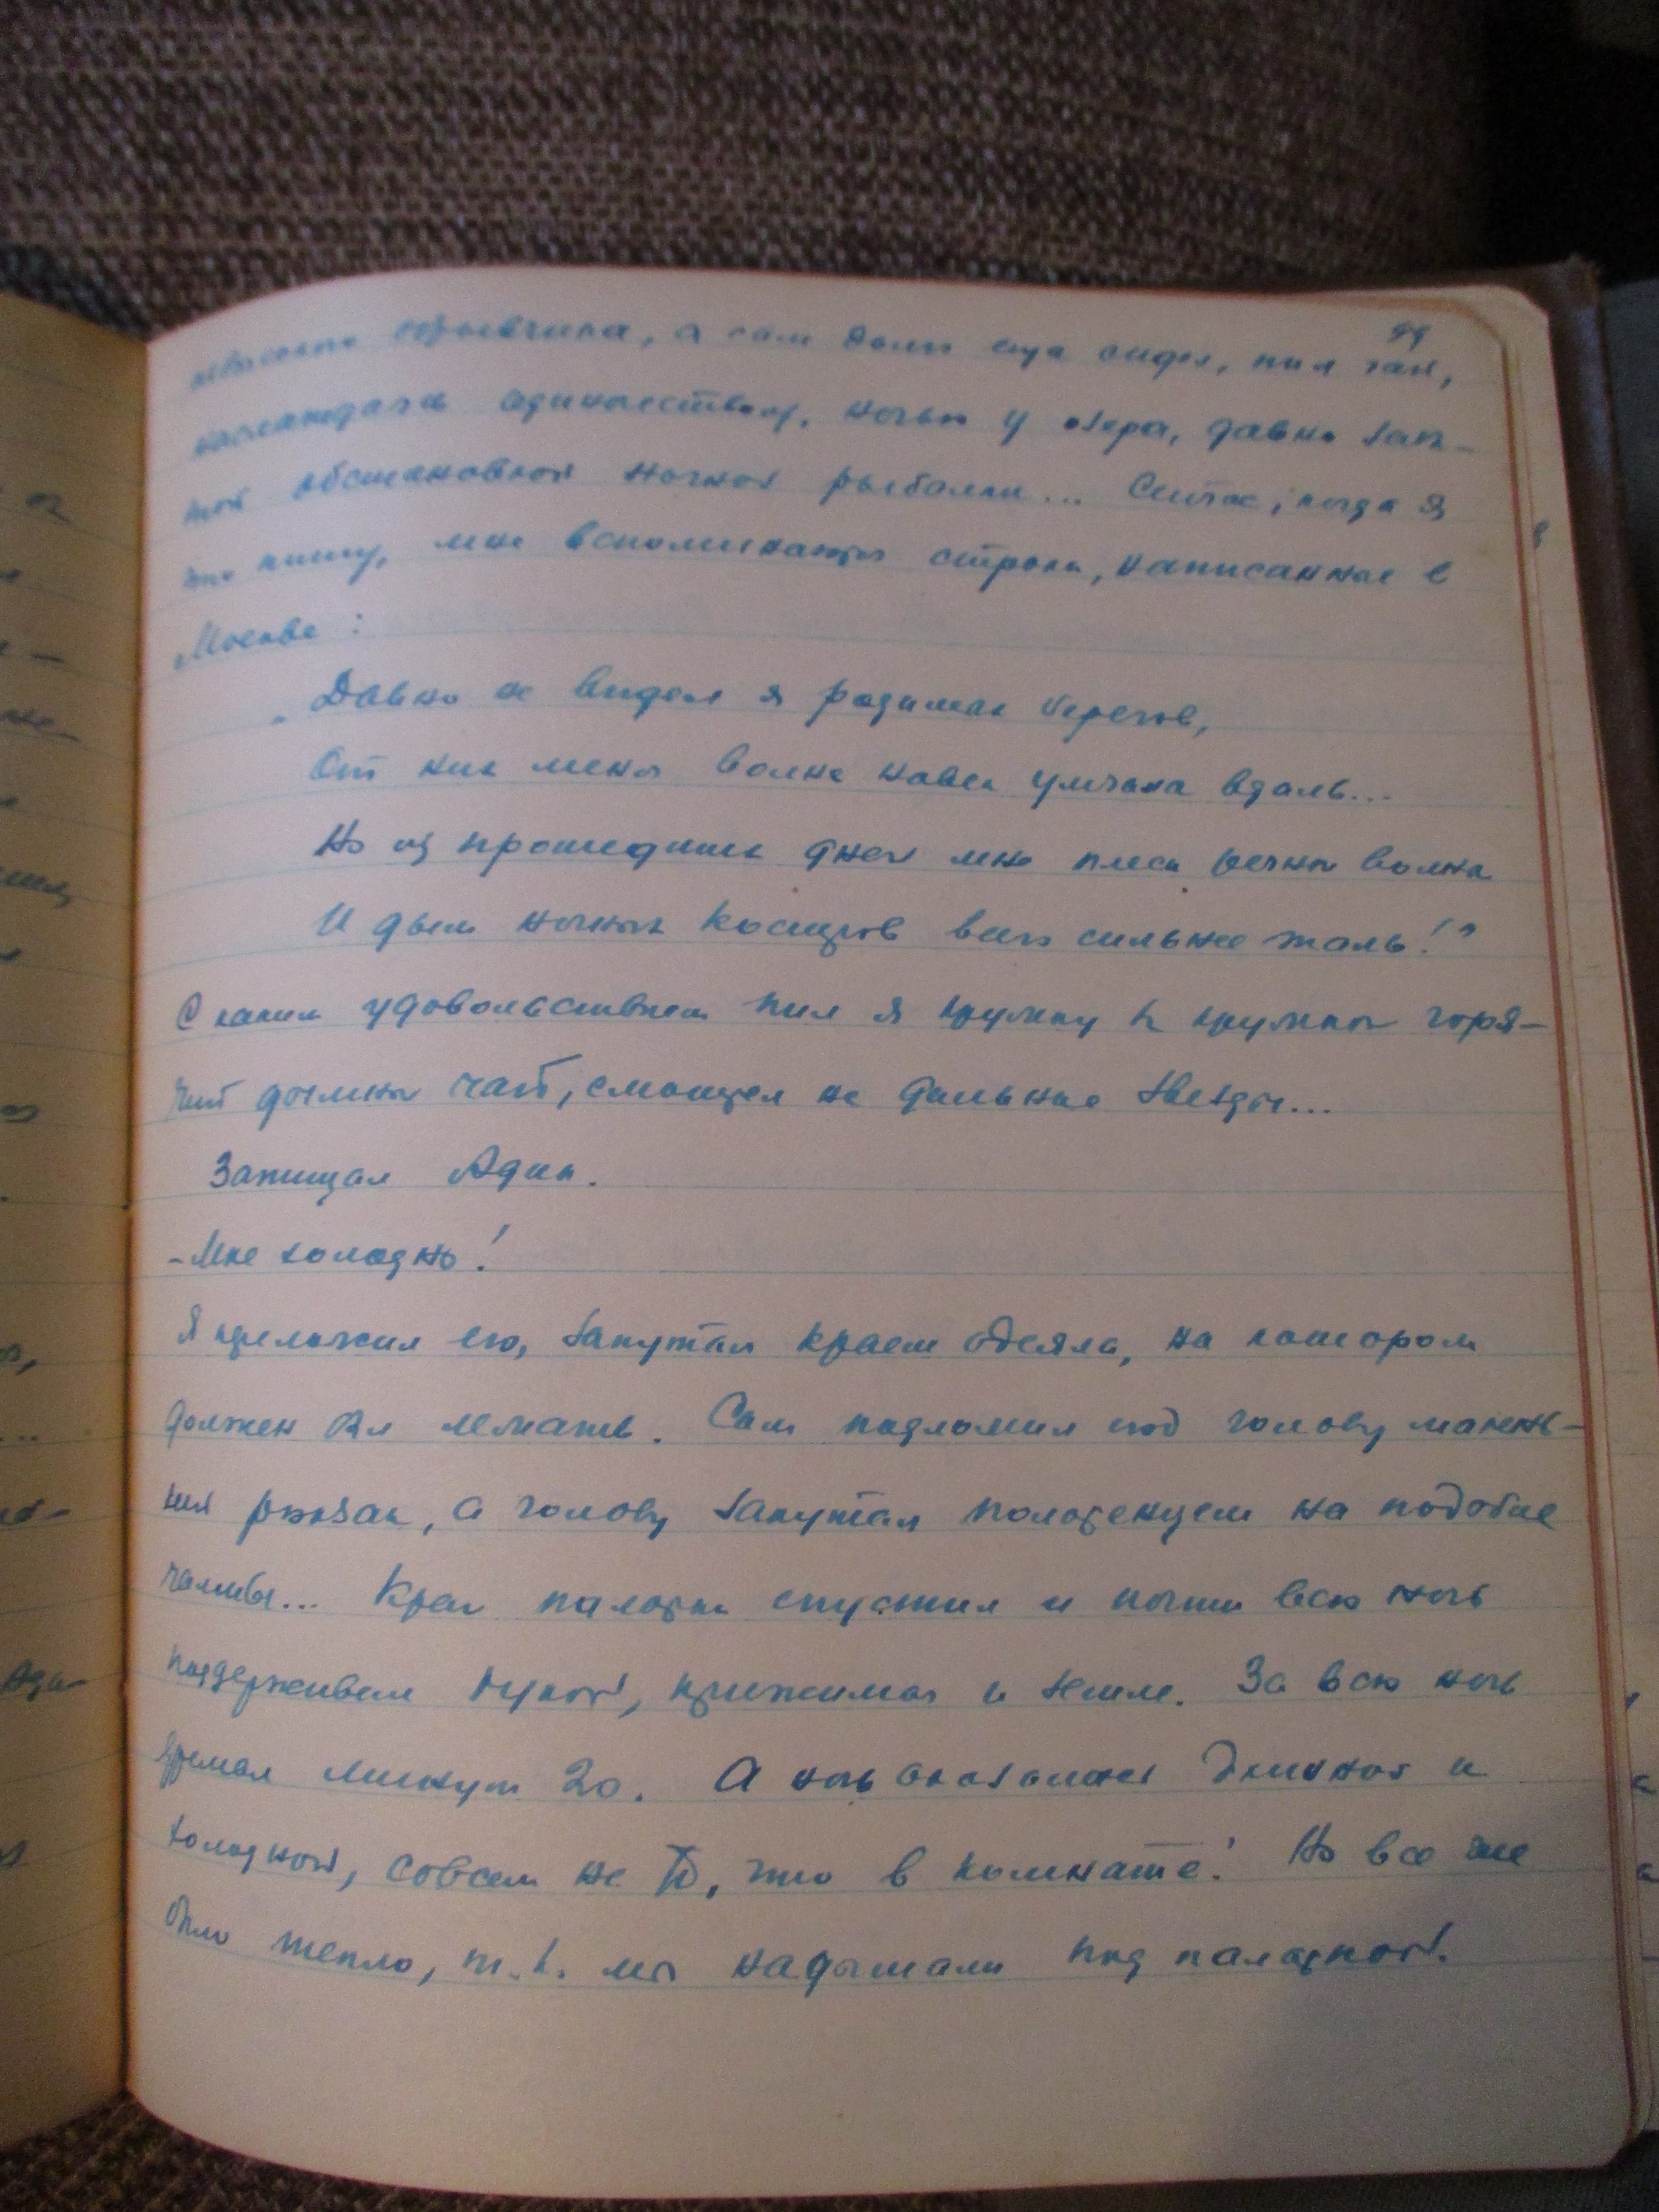 99
обрывчика, а сам долго еще сидел, пил чай,
наслаждаясь одиночеством, ночью у озера, давно забы-
той обстановкой ночной рыбалки... Сейчас, когда я
это пишу, мне вспоминаются строки, написанные в
Москве:
„Давно не видел я родимых берегов,
От них меня волна навек умчала вдаль...
Но из прошедших дней мне плеск речной волны
И дым ночных костров всего сильнее жаль!"
С каким удовольствием пил я кружку за кружкой горя-
чий дымный чай, смотрел на дальние звезды...
Запищал Адик.
- Мне холодно!
Я переложил его, закутал краем одеяла, на котором
должен был лежать. Сам подложил под голову малень-
кий рюкзак, а голову закутал полотенцем на подобие
чалмы... Край палатки спустил и почти всю ночь
поддерживал рукой, прижимая к земле. За всю ночь
дремал минут 20. А ночь оказалась длинной и
холодной, совсем не то, что в комнате! Но все же
было тепло, т.к. мы надышали под палаткой.